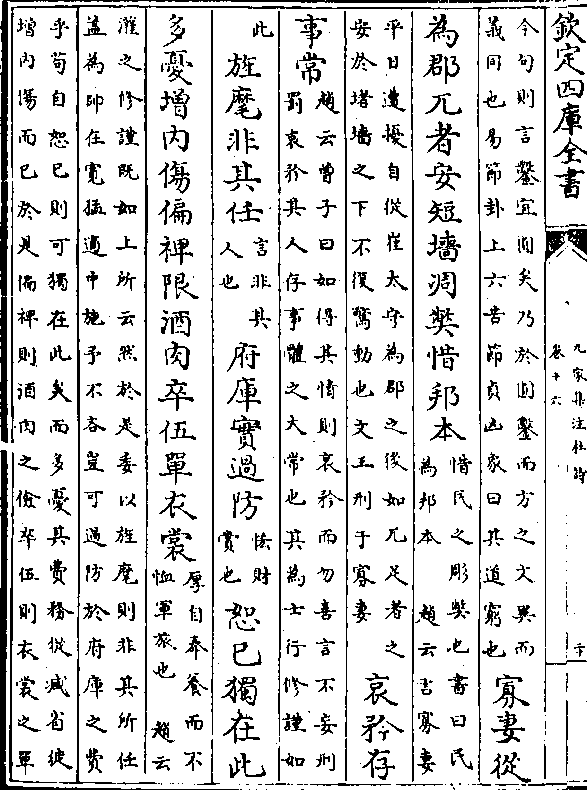 欽定四庫全書
九家集注杜詩
卷十六
十
今句則言鑿宜圓矣乃於圓鑿而方之文異而
義同也易節卦上六苦節貞凶彖曰其道窮也
寡妻從
為郡兀者安短墻凋獘惜邦本
惜民之彫獘也書曰民
為邦本 趙云言寡妻
平日遭擾自從崔太守為郡之後如兀足者之
安於堵墻之下不復驚動也文王刑于寡妻
哀矜存
事常
趙云曾子曰如得其情則哀矜而勿喜言不妄刑
罰哀矜其人存事體之大常也其為士行修謹如
此
旌麾非其任
言非其
人也
府庫實過防
怯財
賞也
恕已獨在此
多憂增内傷偏裨限酒肉卒伍單衣裳
厚自奉養而不
恤軍旅也 趙云
漼之修謹既如上所云然於是委以旌麾則非其所任
蓋為帥在寛猛適中施予不吝豈可過防於府庫之費
乎苟自恕已則可獨在此矣而多憂其費務從減省徒
增内傷而已於是偏裨則酒肉之儉卒伍則衣裳之單